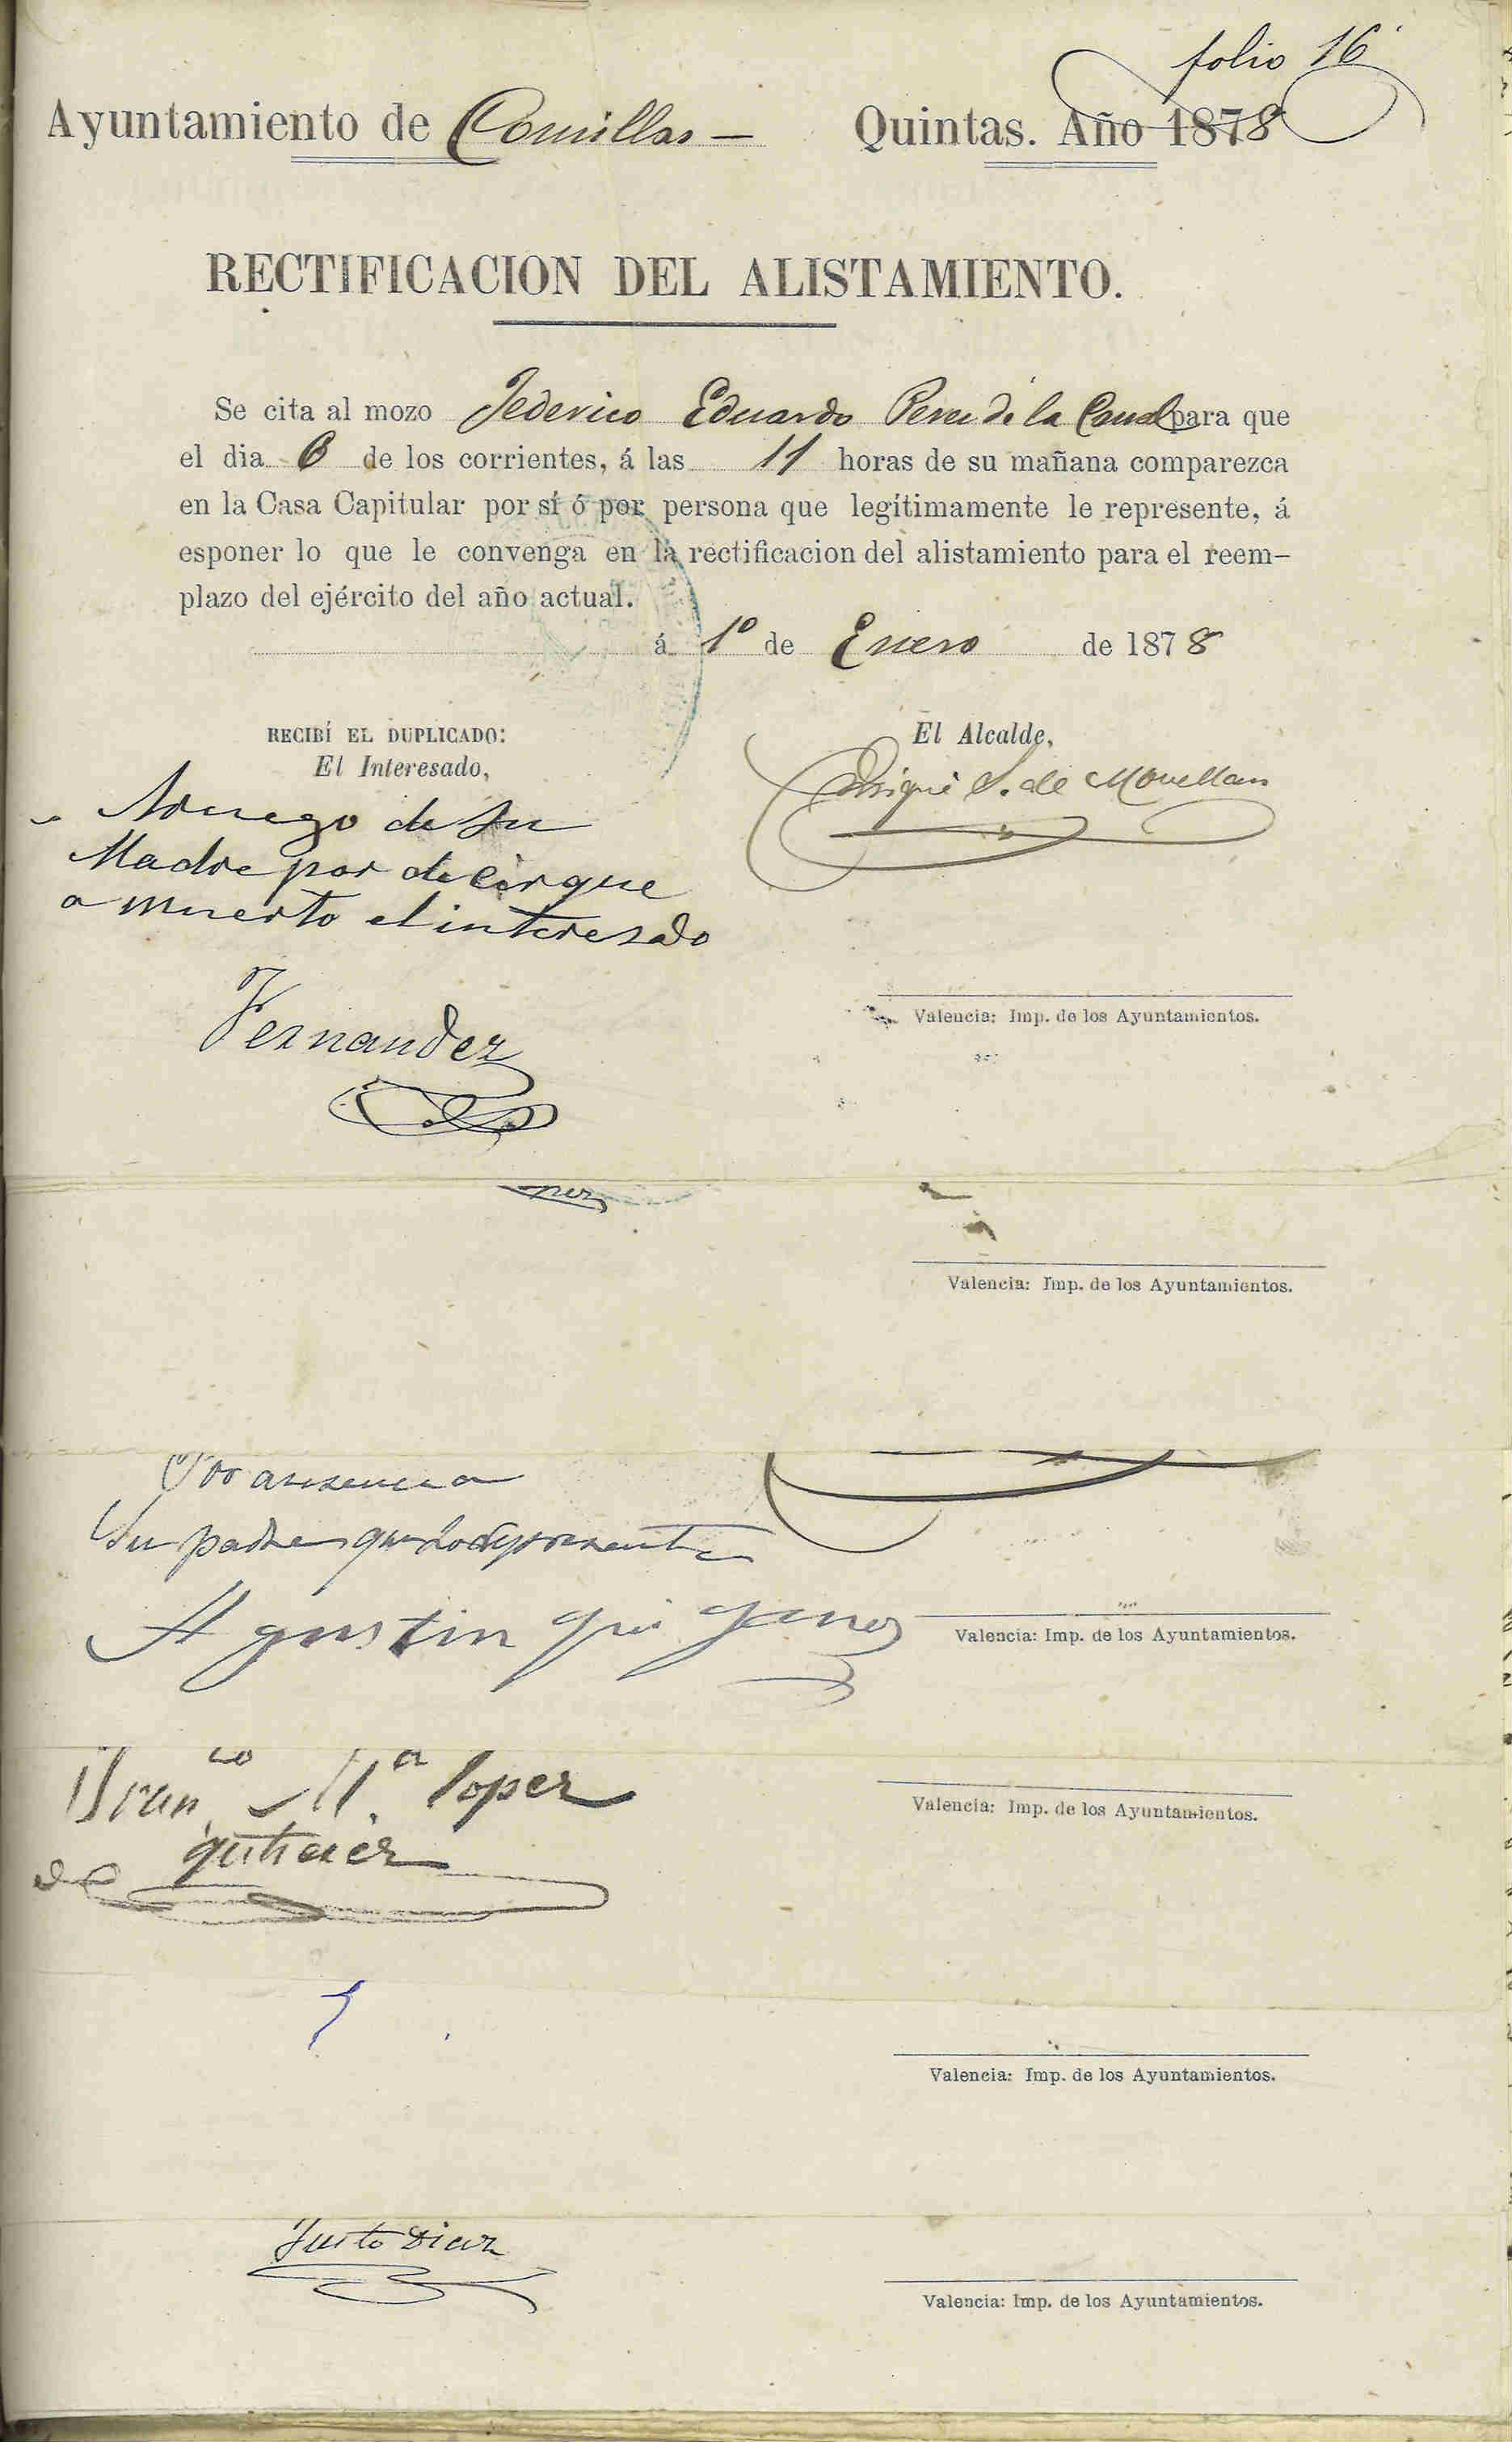 folio 16
Ayuntamiento de Comillas — Quintas. Año 1878
RECTIFICACION DEL ALISTAMIENTO.
Se cita al mozo Federico Eduardo Perez de la Canal para que
el dia 6 de los corrientes, á las 11 horas de su mañana comparezca
en la Casa Capitular por sí ó por persona que legítimamente le represente, á
esponer lo que le convenga en la rectificacion del alistamiento para el reem–
plazo del ejército del año actual.
á 1º de Enero de 1878
RECIBÍ EL DUPLICADO:
El Interesado,
El Alcalde,
S. de Movellan
Aruego de su
Madre por decir que
a muerto el interesado
Fernandez
Valencia: Imp. de los Ayuntamientos.
Valencia: Imp. de los Ayuntamientos.
Por ausencia
Su padre
Agustin
Valencia: Imp. de los Ayuntamientos.
Fran.co M.a lopez
gutierez
Valencia: Imp. de los Ayuntamientos.
Valencia: Imp. de los Ayuntamientos.
Justo Diaz
Valencia: Imp. de los Ayuntamientos.